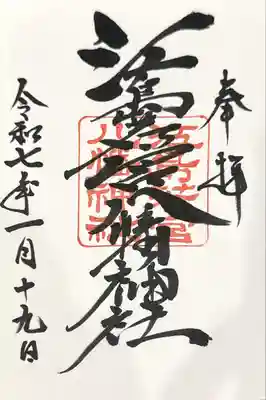 奉拝
江島若宮八幡神社
八幡神社
令和七年一月十九日